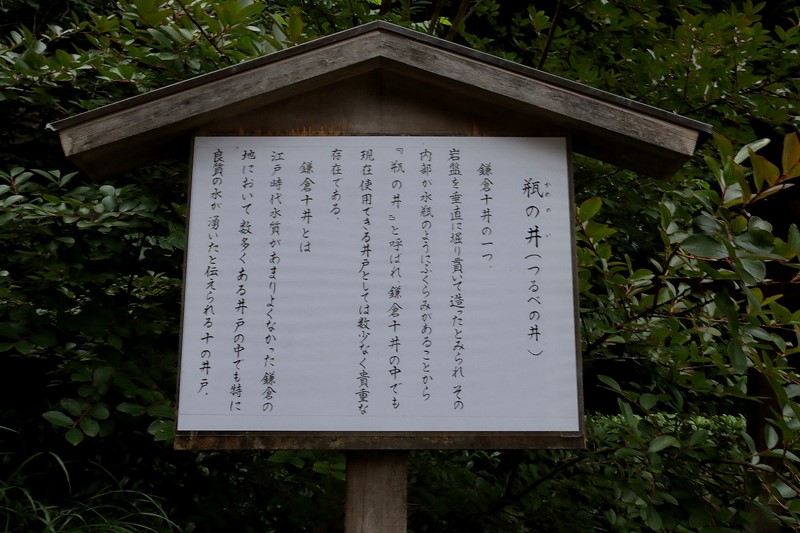 瓶の井(つるべの井)
かめ の い
鎌倉十井の一つ。
岩盤を垂直に堀り貫いて造ったとみられ その
内部が水瓶のようにふくらみがあることから
『瓶の井』と呼ばれ 鎌倉十井の中でも
現在使用できる井戸としては数少なく貴重な
存在である。
鎌倉十井とは
江戸時代水質があまりよくなかった鎌倉の
地において数多くある井戸の中でも特に
良質の水が湧いたと伝えられる十の井戸。